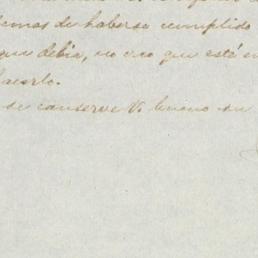 demas de haberse cumplido
que debia, no creo que esté en
hacerlo.
se conserve V. bueno su